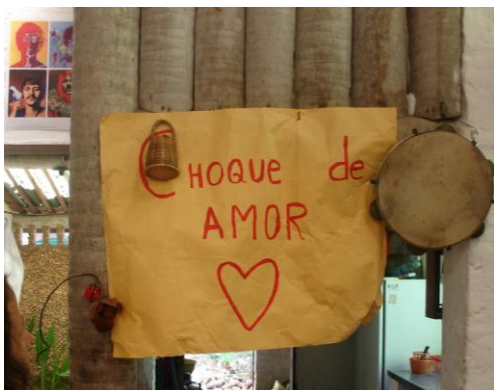 CHOQUE de
AMOR